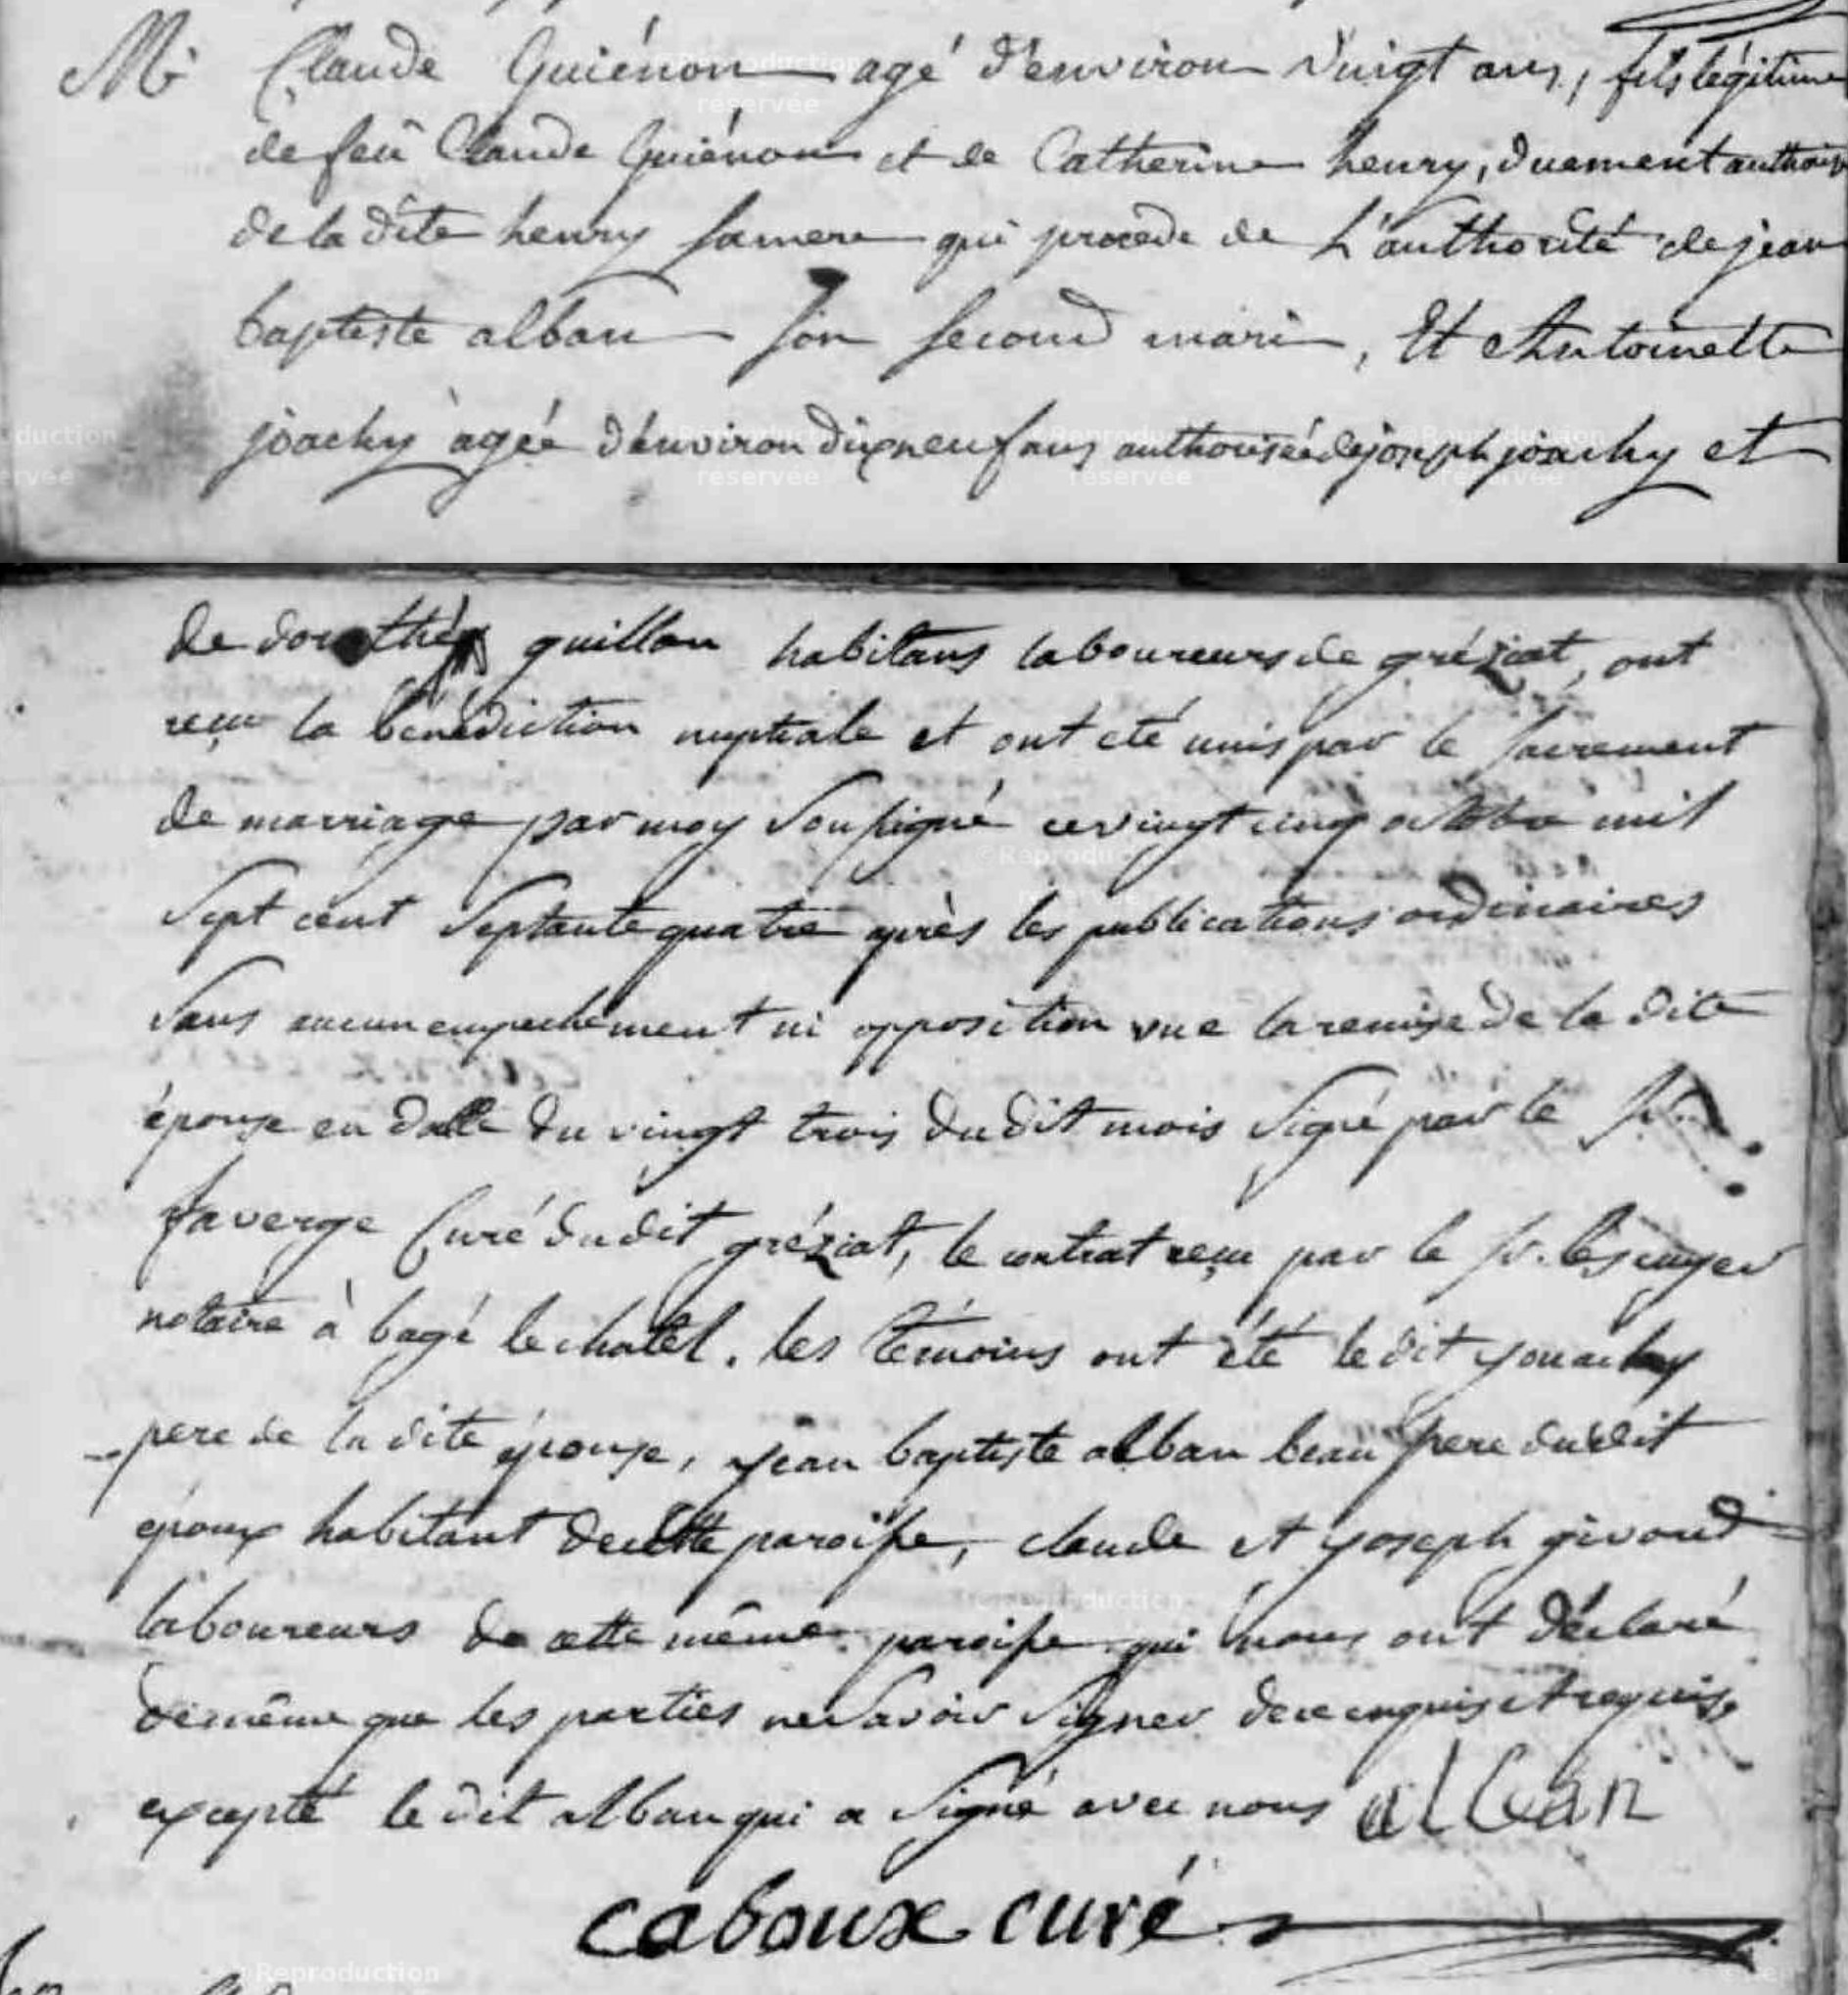 M. Claude Guiénon agé d'environ vingt ans, fils légitime
de feu Claude Guiénon et de Catherine henry, duement authoris
de la dite henry sa mere qui procede de L'authorité de jean
baptiste alban son second mari, Et Antoinette
joachy agée d'environ dix neuf ans authorisée de joseph joachy et
de dorothée guillon habitans laboureurs de gréziat, ont
reçu la bénédiction nuptiale et ont été unis par le sacrement
de marriage par moy soussigné ce vingt cinq octobre mil
sept cent septante quatre après les publications ordinaires
sans aucun empechement ni opposition vue la remise de la dite
épouse en datte du vingt trois du dit mois signé par le sr.
faverge Curé du dit gréziat, le contrat reçu par le sr. lescuyer
notaire à bagé le chatel. les témoins ont été le dit youachy
pere de la dite épouse, jean baptiste alban beau pere du dit
époux habitant de cette paroisse, claude et joseph givord
laboureurs de cette même paroisse qui nous ont déclaré
de même que les parties ne savoir signer de ce enquis et requis,
excepté le dit alban qui a signé avec nous alban
caboux curé